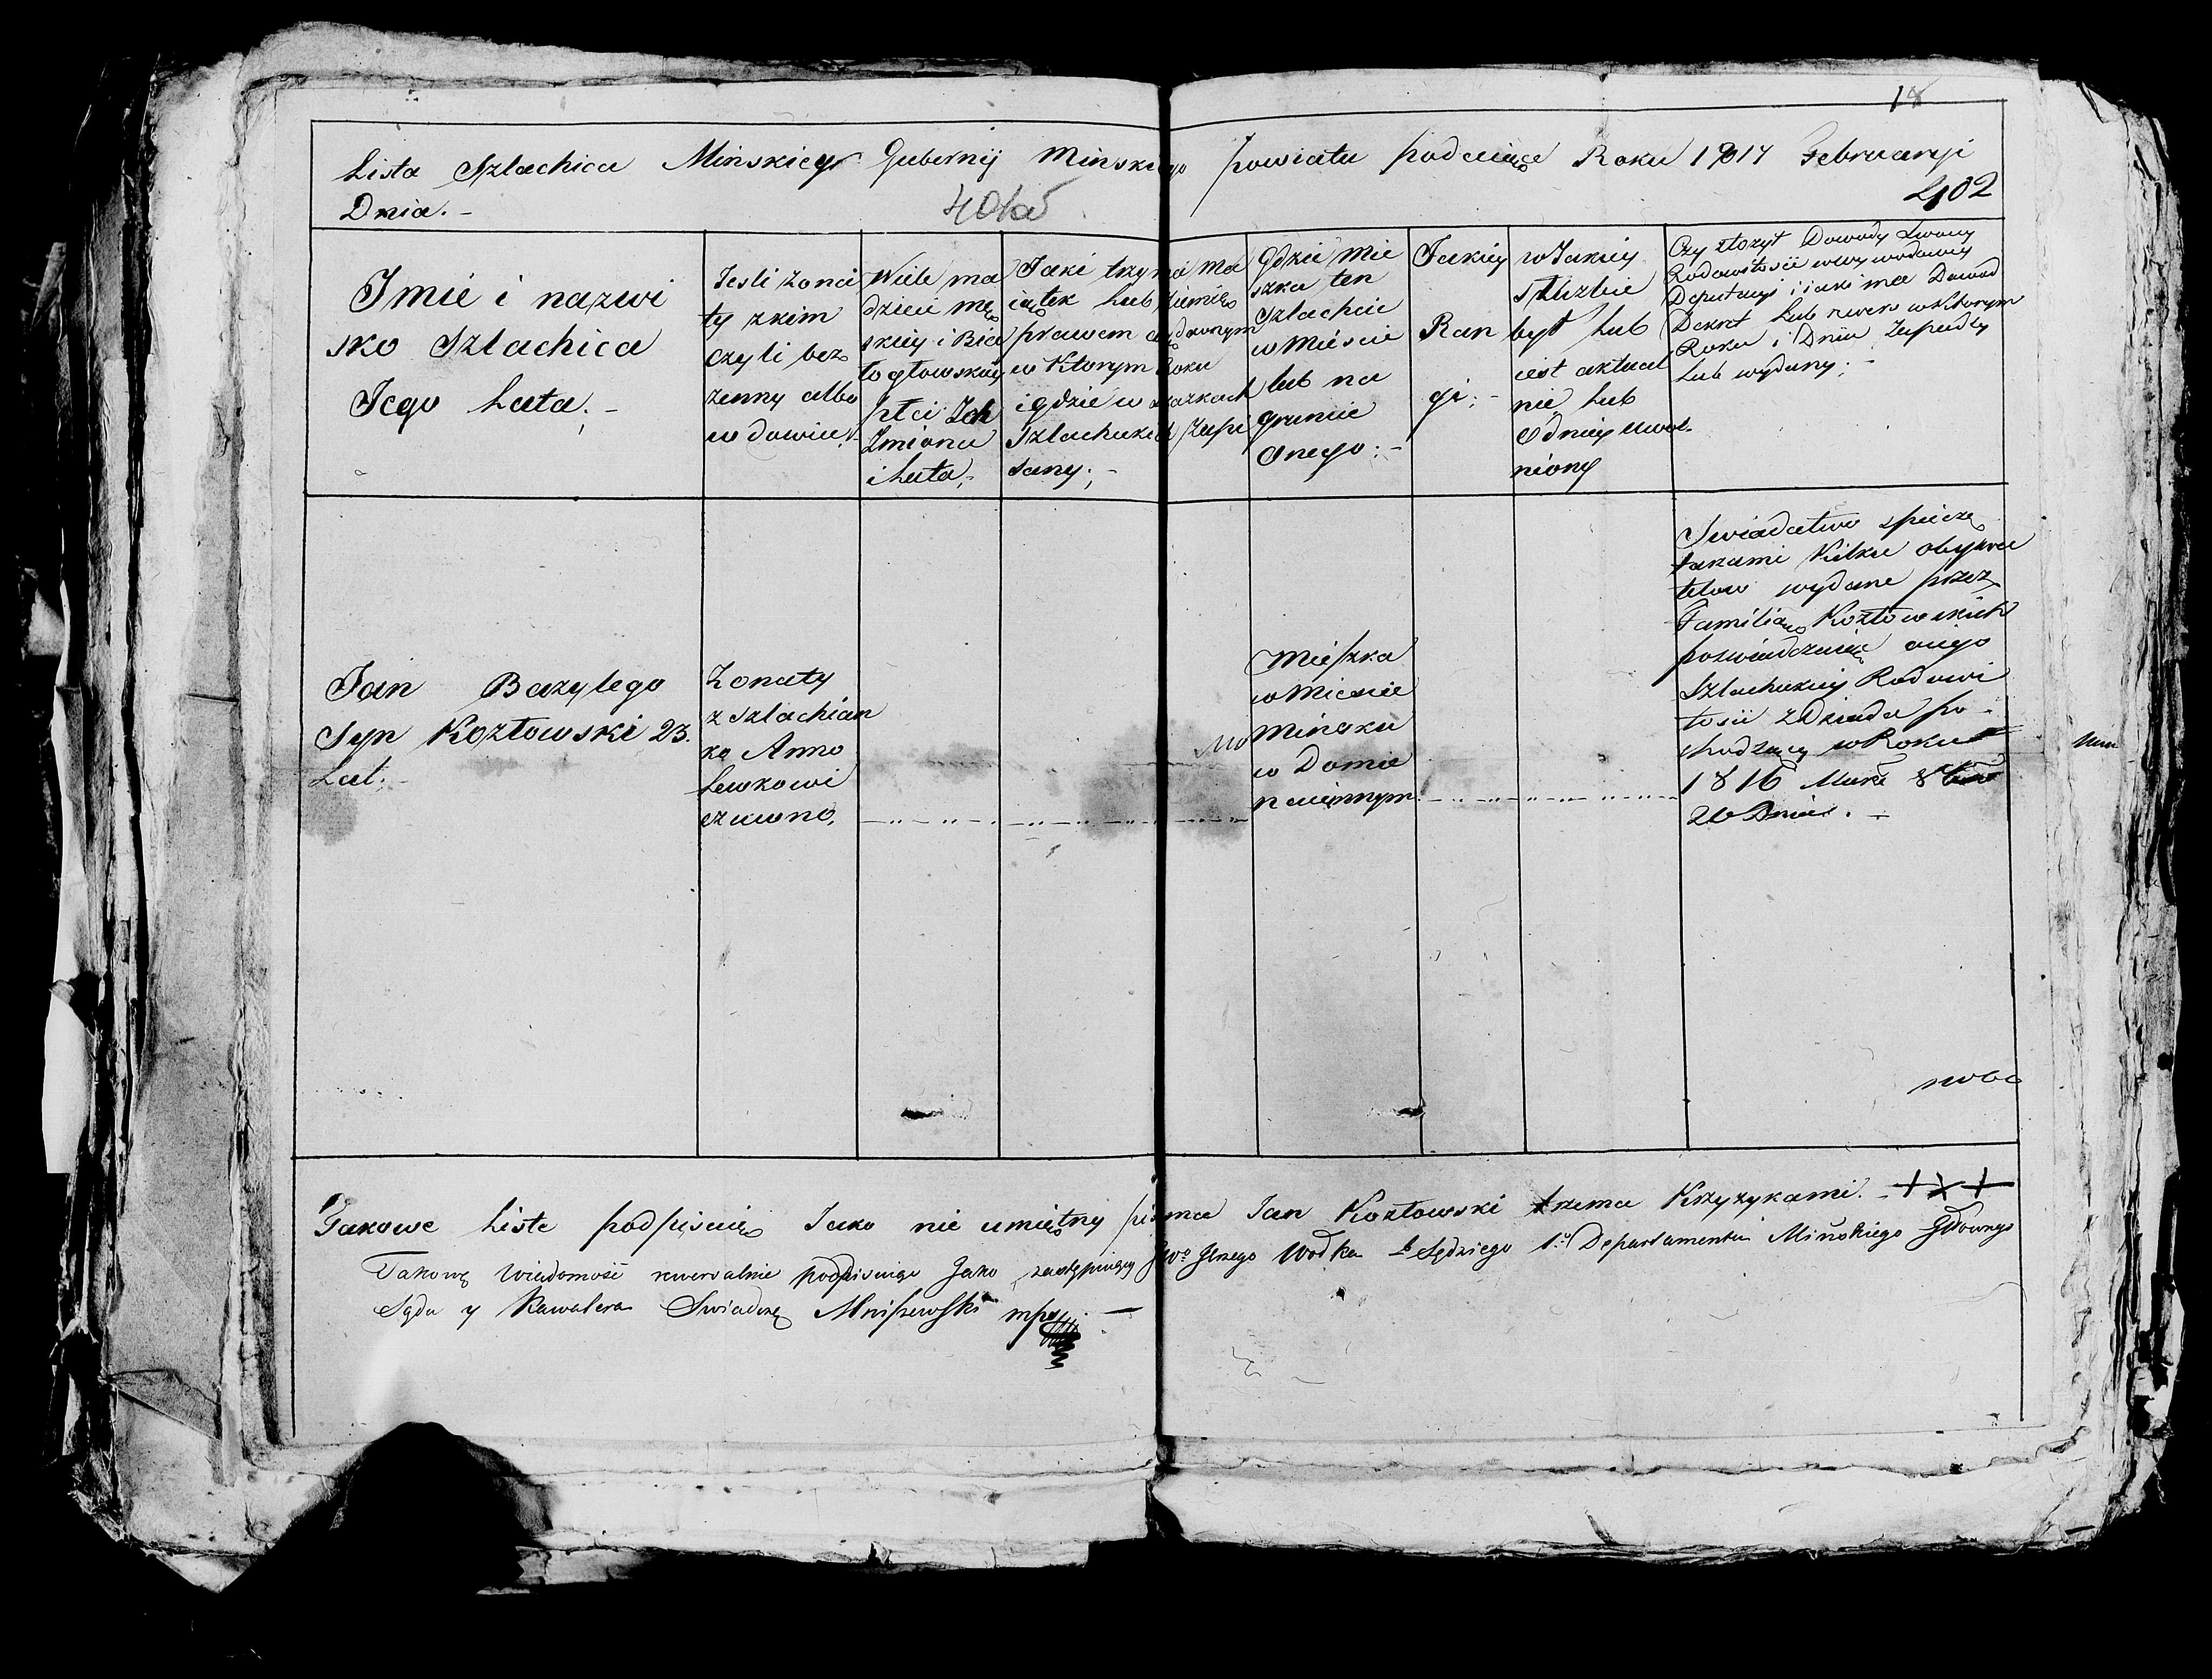 18
Lista Szlachica Minskiey Gubernij Minskiego powiatu podaiącę Roku 1817 Februaryi
402
Dnia. -
401об
Imie i nazwi
sko Szlachica
Iego Lata; -
Iesli żona
ty zkim
czyli bez
żenny albo
wdowiec
Wiele ma
dzieci mę
skiey i Bia
łogłowskiey
płci Ich
Imiona
i Lata; -
Iaki trzyma ma
iątek lub ziemię
prawem
w Ktorym Roku
i gdzie w skazkach
Szlacheckich zapi
sany; -
Gdzie mie
szka ten
szlachcic
w Mieście
lub na
gruncie
onego: -
Iakiey
Ran
gi; -
w Iakiey
Służbie
był lub
iest aktual
nie lub
Odniey uwol
niony
Czy złożył Dowody swoiey
Rodowitości wwywodowey
Deputacyi i iaki ma Dowod
Dekret lub rewers w Ktorym
Roku i Dniu zapadły
lub wydany; -
Ian Bazylego
Syn Kozłowski 23.
Lat; -
Żonaty
z szlachian
ką Anną
Lewkowi
czowną.
Mieszka
w Miescie
Minsku
w Domie
naiemnym
Swiadectwo spieczę
takami Kilku obywa
telow wydane przez
Familią Kozłowskich
poswiadczaiące oiego
Szlacheckiey Rodowi
tosci zDziada po -
chodzącey w Roku
1816 Mca 8bra
26 Dnia. -
Takowe Liste podpisuię Iako nie umiętny pisma Ian Kozłowski trzema Krzyżykami. - + x +
Takowę wiadomość rewersalnie podpisuiąc Jako zastępuiący Jwo Jgnzego Wodka Sędziego 1o Departamentu Mińskiego Głownego
Sądu y Kawalera Swiadczę Mniszewski mpp -